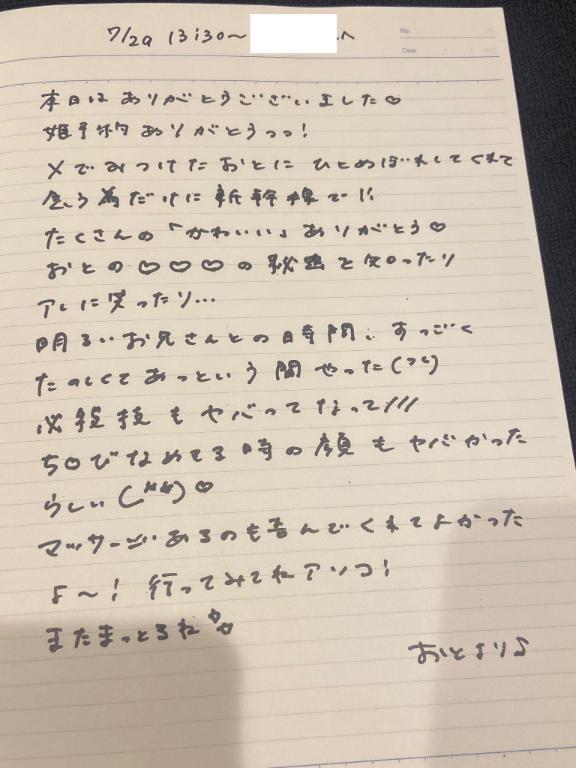 7/29 13:30〜 さんへ
No.
Date
本日はありがとうございました♡
姫予約ありがとうっっ!
Xでみつけたおとにひとめぼれしてくれて
会う為だけに新幹線で!!
たくさんの「かわいい」ありがとう♡
おとの♡♡♡の秘密を知ったり
アレに笑ったり…
明るいお兄さんとの時間、すっごく
たのしくてあっという間やった
必殺技もヤバってなって///
ち♡びなめてる時の顔もヤバかった
らしい(**)♡
マッサージあるのも喜んでくれてよかった
よ〜! 行ってみてねアソコ!
またまっとるね♡♡
おとより♪